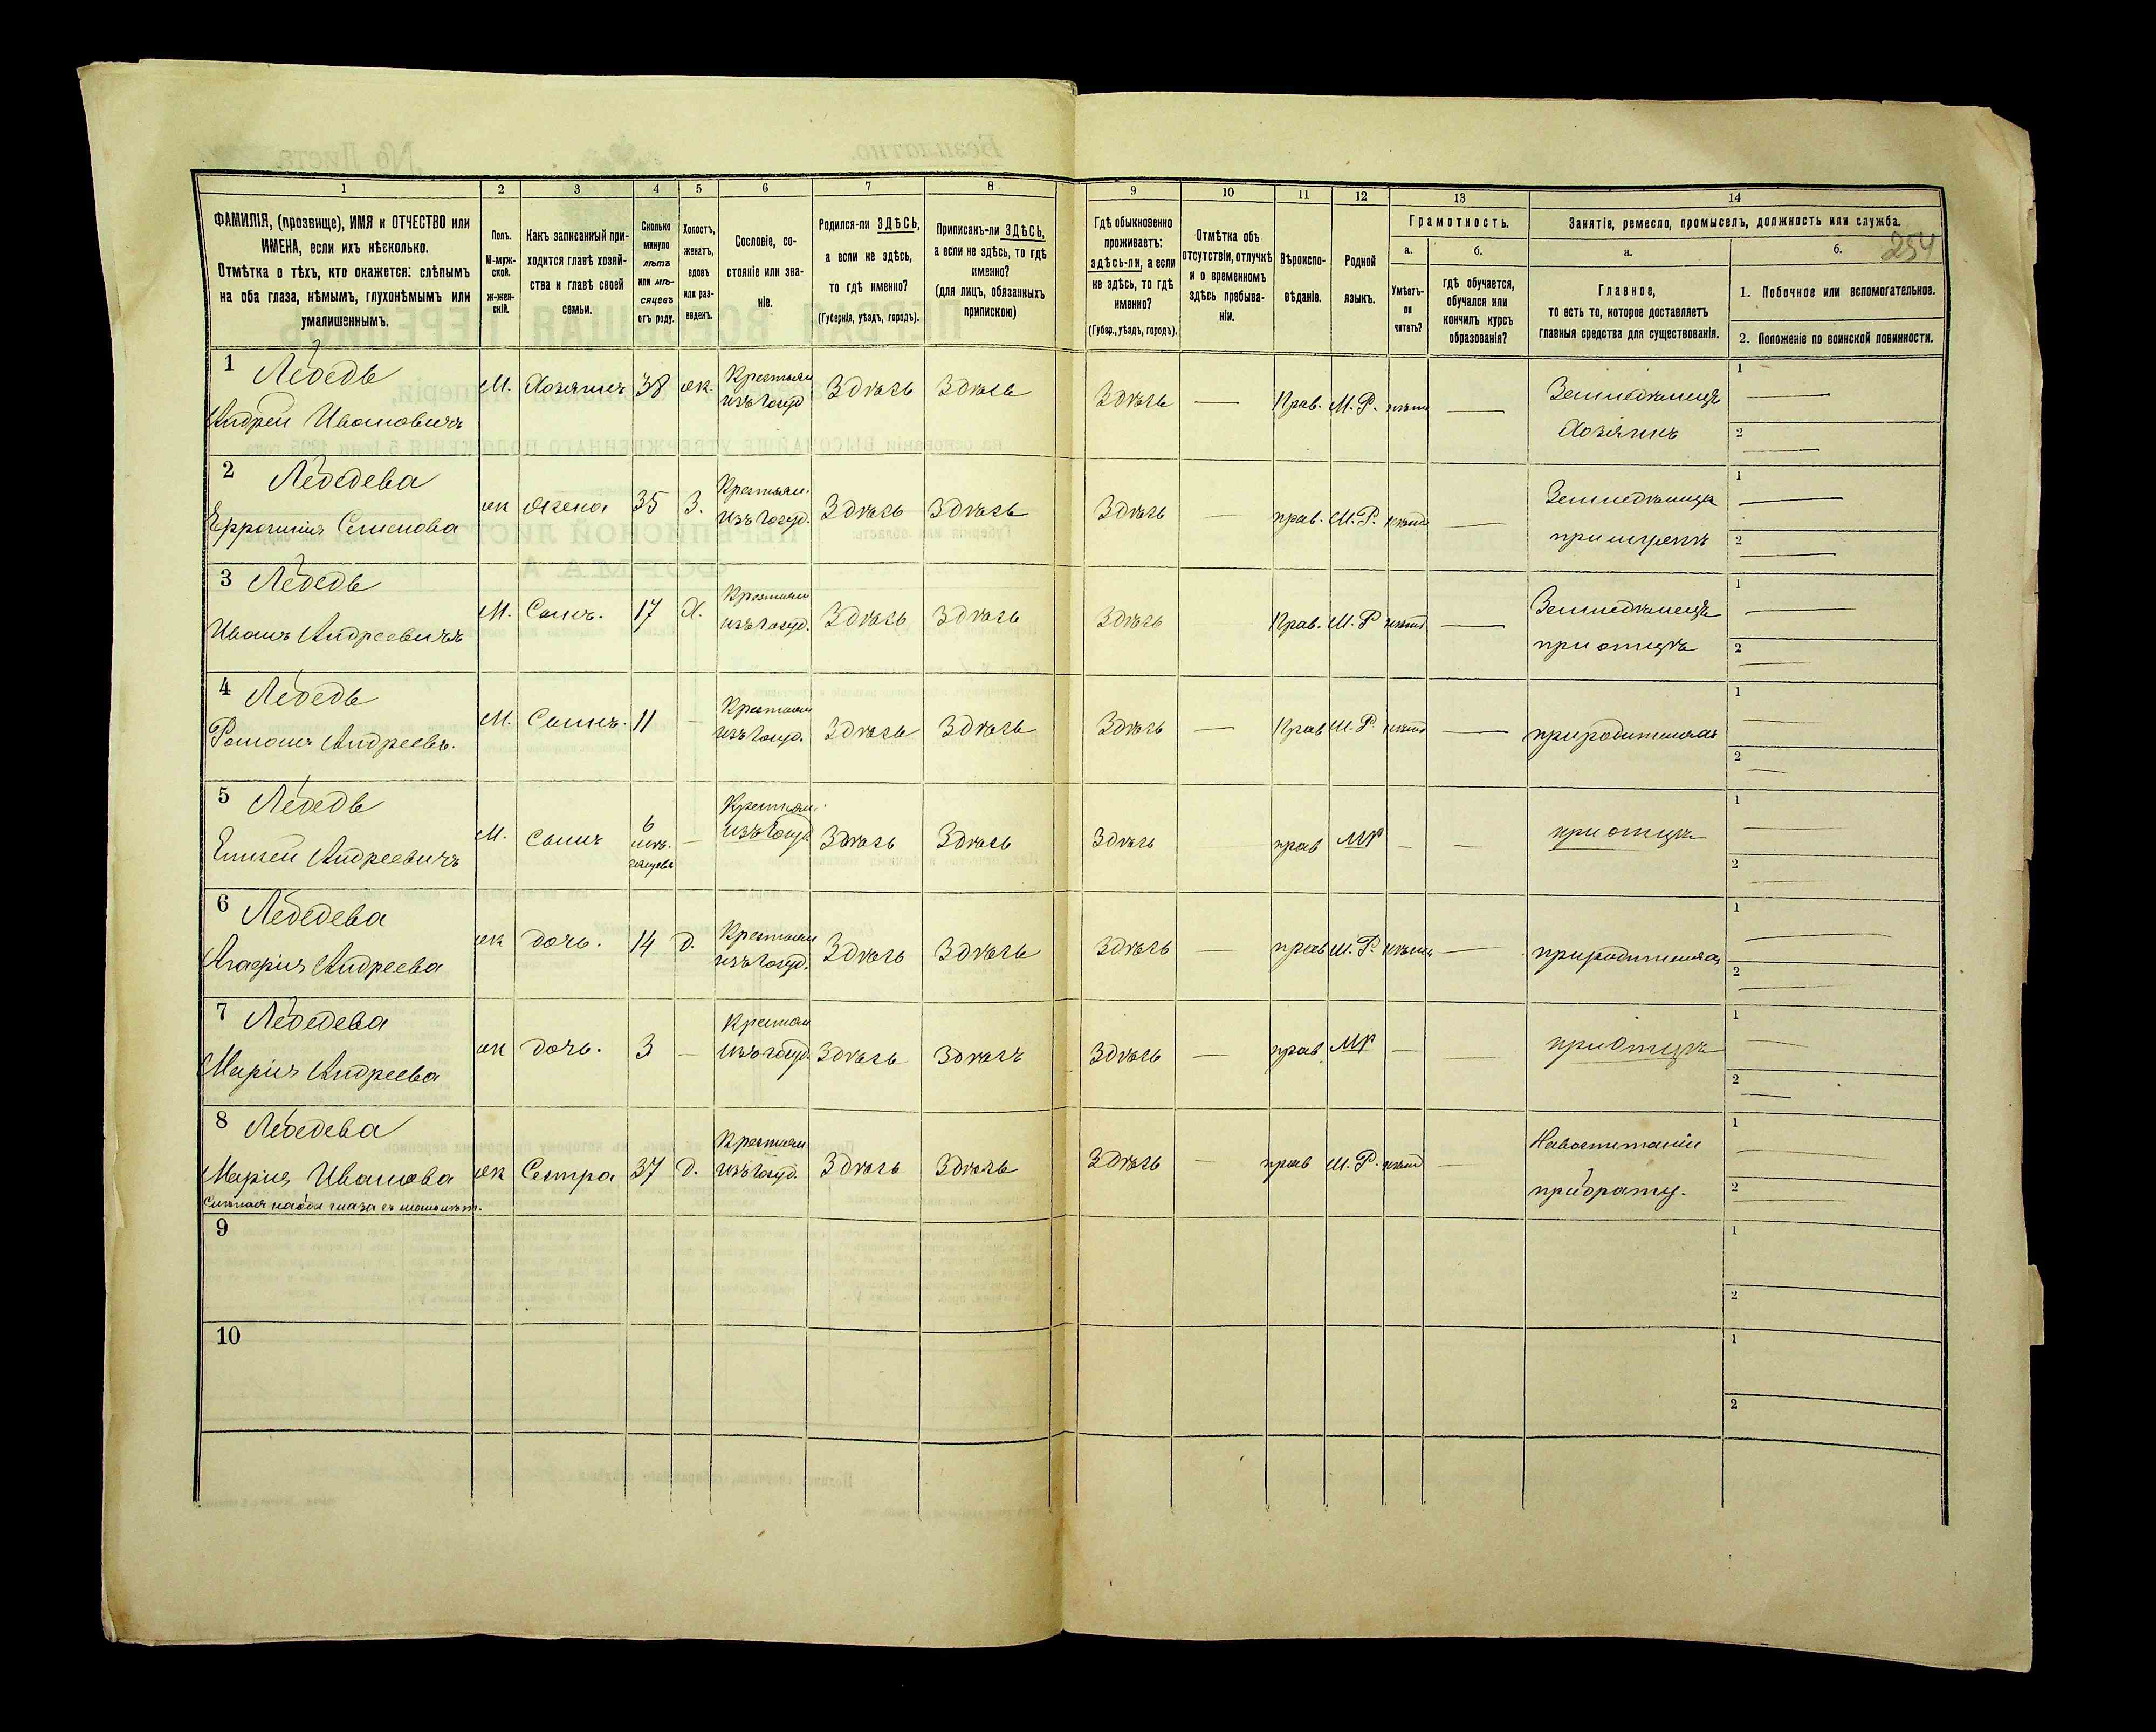 254
1 2 3 4 5 6 7 8 9 10 11 12 13 14
ФАМИЛІЯ, (прозвище), ИМЯ и ОТЧЕСТВО или
ИМЕНА, если ихъ нѣсколько.
Отмѣтка о тѣхъ, кто окажется: слѣпымъ
на оба глаза, нѣмымъ, глухонѣмымъ или
умалишеннымъ.
Полъ.
М-муж-
ской.
ж-жен-
скій.
Какъ записанный при-
ходится главѣ хозяй-
ства и главѣ своей
семьи.
Сколько
минуло
лѣтъ
или мѣ-
сяцевъ
отъ роду.
Холостъ,
женатъ,
вдовъ
или раз-
веденъ.
Сословіе, со-
стояніе или зва-
ніе.
Родился-ли ЗДѢСЬ,
а если не здѣсь,
то гдѣ именно?
(Губернія, уѣздъ, городъ).
Приписанъ-ли ЗДѢСЬ,
а если не здѣсь, то гдѣ
именно?
(для лицъ, обязанныхъ
припискою)
Гдѣ обыкновенно
проживаетъ:
здѣсь-ли, а если
не здѣсь, то гдѣ
именно?
(Губер., уѣздъ, городъ).
Отмѣтка объ
отсутствіи, отлучкѣ
и о временномъ
здѣсь пребыва-
ніи.
Вѣроиспо-
вѣданіе.
Родной
языкъ.
Грамотность.
а.
Умѣетъ-
ли
читать?
б.
гдѣ обучается,
обучался или
кончилъ курсъ
образованія?
Занятіе, ремесло, промыселъ, должность или служба.
а.
Главное,
то есть то, которое доставляетъ
главныя средства для существованія.
б.
1. Побочное или вспомогательное.
2. Положеніе по воинской повинности.
1 Лебедь
Андрей Ивановичъ
М. Хозяинъ 38 ж. Крестьян
изъ Госуд Здѣсь Здѣсь Здѣсь — Прав. М.Р. нѣтъ — Земледѣлецъ
Хозяинъ
1 —
2 —
2 Лебедева
Ефросинія Семенова
ж Жена 35 З. Крестьян.
изъ Госуд. Здѣсь Здѣсь Здѣсь — прав. М.Р. нѣтъ — Земледѣлица
1 —
2 —
3 Лебедь
Иванъ Андреевичъ
М. Сынъ. 17 Х. Крестьян
изъ Госуд. Здѣсь Здѣсь Здѣсь Прав. М.Р нѣтъ — Земледѣлецъ
при отцѣ
1 —
2 —
4 Лебедь
Романъ Андреевъ.
М. Сынъ. 11 — Крестьян
изъ Госуд. Здѣсь Здѣсь Здѣсь — Прав М.Р. нѣтъ — при родителяхъ
1 —
2 —
5 Лебедь
Андреевичъ
М. Сынъ 6
мѣ-
сяцевъ — Крестьян.
изъ Госуд. Здѣсь Здѣсь Здѣсь прав МР — — при отцѣ
1 —
2 —
6 Лебедева
Агафія Андреева
ж дочь. 14 д. Крестьян
изъ Госуд. Здѣсь Здѣсь Здѣсь — прав М.Р. нѣтъ — при родителяхъ
1 —
2 —
7 Лебедева
Марія Андреева
ж дочь. 3 — Крестьян
изъ Госуд. Здѣсь Здѣсь Здѣсь — прав МР — — при отцѣ
1 —
2 —
8 Лебедева
Марія Иванова
Слѣпая на оба глаза
ж Сестра 37 д. Крестьян
изъ Госуд. Здѣсь Здѣсь Здѣсь — прав М.Р. нѣтъ — На воспитаніи
при брату.
1 —
2 —
9
1
2
10
1
2